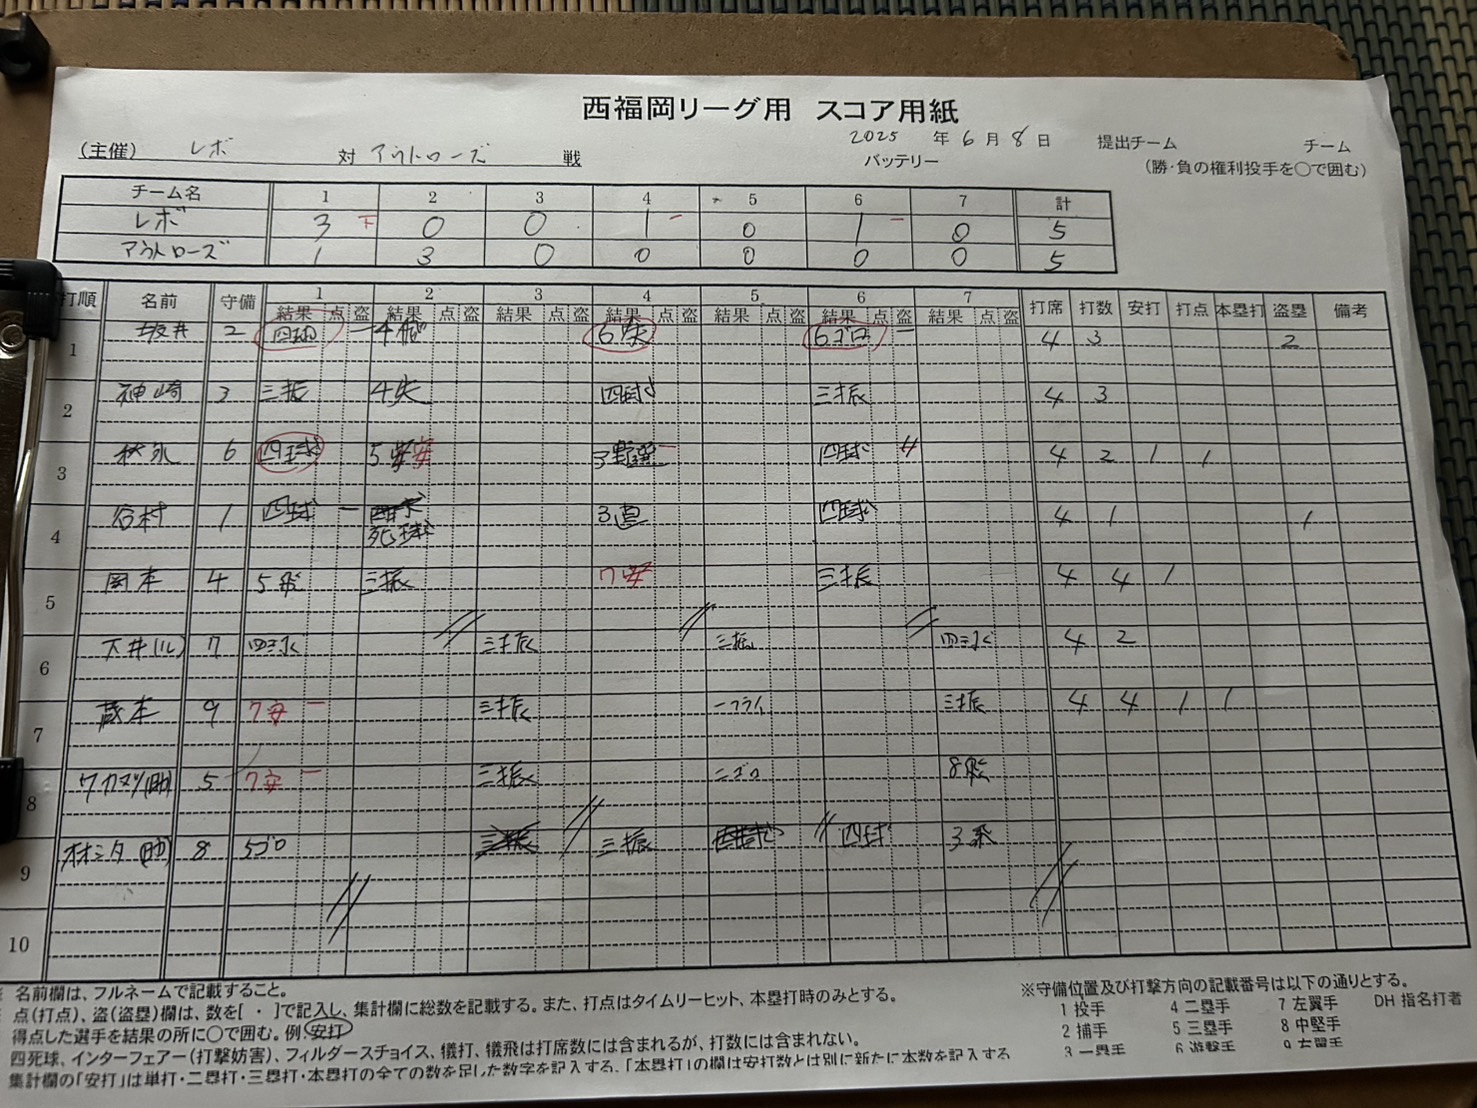 西福岡リーグ用 スコア用紙
2025 年 6 月 8 日 提出チーム チーム
(主催) レボ 対 アウトローズ 戦 バッテリー (勝・負の権利投手を○で囲む)
チーム名 1 2 3 4 5 6 7 計
レボ 3 下 0 0 1 0 1 0 5
アウトローズ 1 3 0 0 0 0 0 5
打順 名前 守備 1 2 3 4 5 6 7 打席 打数 安打 打点 本塁打 盗塁 備考
結果 点 盗 結果 点 盗 結果 点 盗 結果 点 盗 結果 点 盗 結果 点 盗 結果 点 盗
1 坂井 2 四球 一 4 6失 6ゴロ 一 4 3 2
2 神崎 3 三振 4失 四球 三振 4 3
3 6 四球 5安 安 3野選 一 四球 4 2 1 1
4 谷村 1 四球 一 死球 3直 四球 4 1 1
5 岡本 4 5飛 三振 7安 三振 4 4 1
6 天井(ル) 7 四球 三振 三振 四球 4 2
7 蔵本 9 7安 一 三振 一フライ 三振 4 4 1 1
8 ワカマツ(助) 5 7安 一 三振 二ゴロ 8飛
9 8 5ゴロ 三振 三振 四球 3飛
10
名前欄は、フルネームで記載すること。
点(打点)、盗(盗塁)欄は、数を[ ・ ]で記入し、集計欄に総数を記載する。また、打点はタイムリーヒット、本塁打時のみとする。
得点した選手を結果の所に○で囲む。例.安打
四死球、インターフェアー(打撃妨害)、フィルダースチョイス、犠打、犠飛は打席数には含まれるが、打数には含まれない。
集計欄の「安打」は単打・二塁打・三塁打・本塁打の全ての数を足した数字を記入する。「本塁打」の欄は安打数とは別に新たに本数を記入する
※守備位置及び打撃方向の記載番号は以下の通りとする。
1 投手 4 二塁手 7 左翼手 DH 指名打者
2 捕手 5 三塁手 8 中堅手
3 一塁手 6 遊撃手 9 右翼手